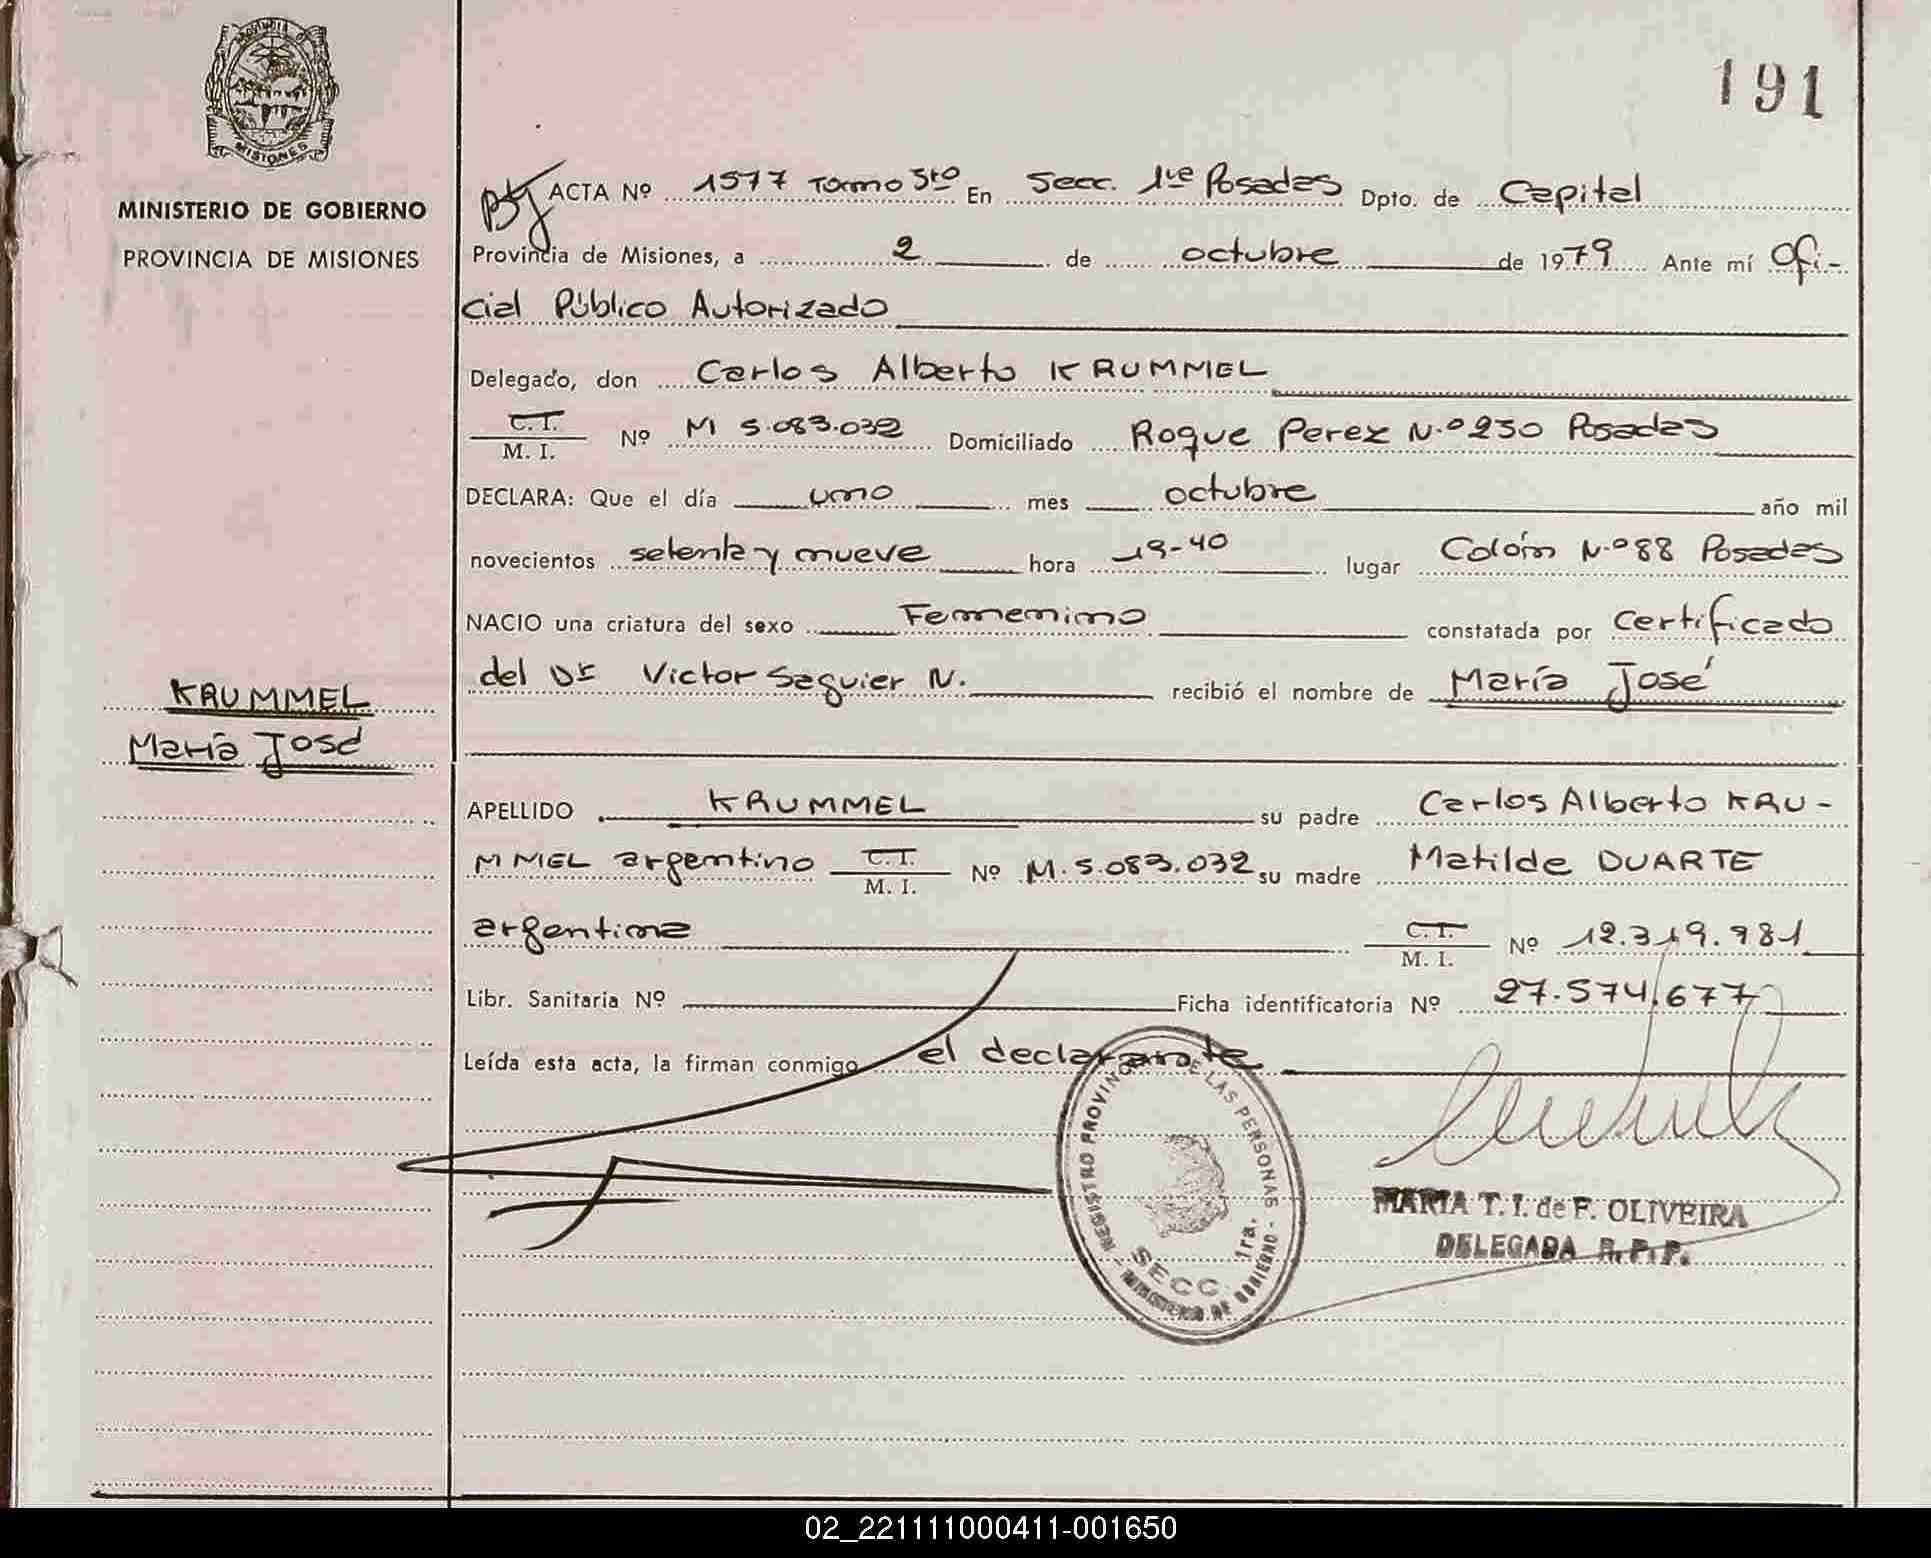 191
PROVINCIA DE
MISIONES
MINISTERIO DE GOBIERNO
PROVINCIA DE MISIONES
ACTA Nº 1577 Tomo 5to En Secc. 1ra Posadas Dpto. de Capital
Provincia de Misiones, a 2 de octubre de 1979 Ante mí Ofi-
cial Público Autorizado
Delegado, don Carlos Alberto KRUMMEL
C.I. M. I. Nº M 5.083.032 Domiciliado Roque Perez N.º 250 Posadas
DECLARA: Que el día uno mes octubre año mil
novecientos setenta y nueve hora 19-40 lugar Colón N.º 88 Posadas
NACIO una criatura del sexo Femenino constatada por Certificado
del Dr Victor Saguier N. recibió el nombre de María José
KRUMMEL
María José
APELLIDO KRUMMEL su padre Carlos Alberto KRU-
MMEL argentino C.I. M. I. Nº M. 5.083.032 su madre Matilde DUARTE
argentina C.I. M. I. Nº 12.319.981
Libr. Sanitaria Nº Ficha identificatoria Nº 27.574.677
Leída esta acta, la firman conmigo el declarante
REGISTRO PROVINCIAL DE LAS PERSONAS
SECC. 1ra.
- MINISTERIO DE GOBIERNO -
MARIA T. I. de F. OLIVEIRA
DELEGADA R. P. P.
02_221111000411-001650